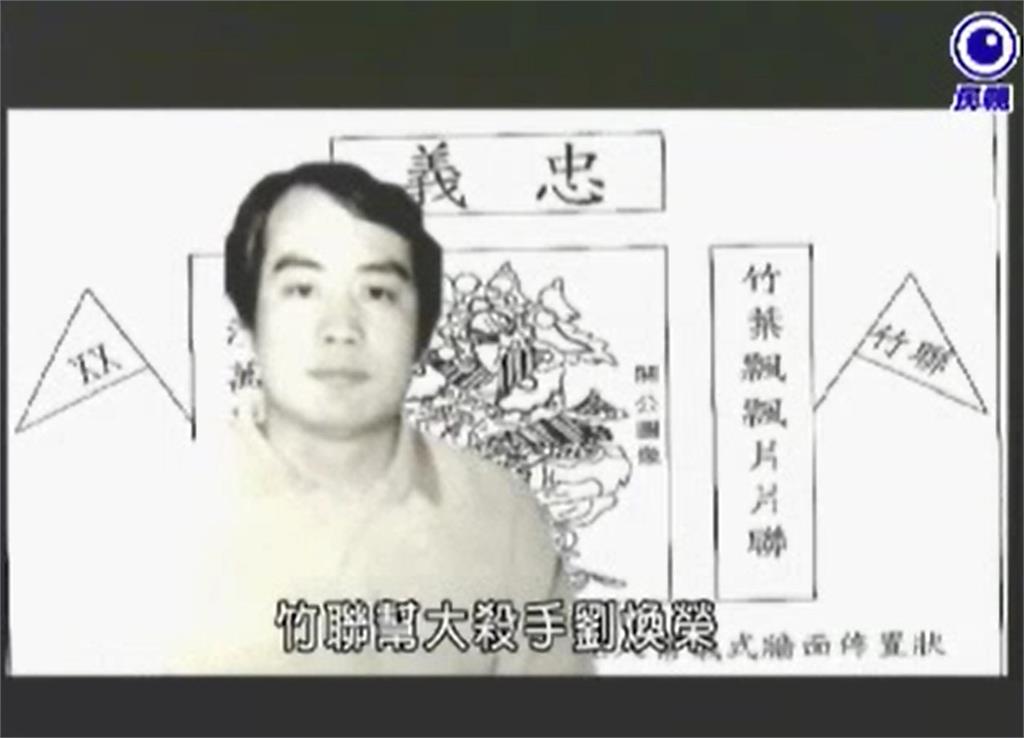 民視
義 忠
XX
萬
關公圖像
竹葉飄飄片片聯
竹聯
竹聯幫大殺手劉煥榮
式牆面佈置狀